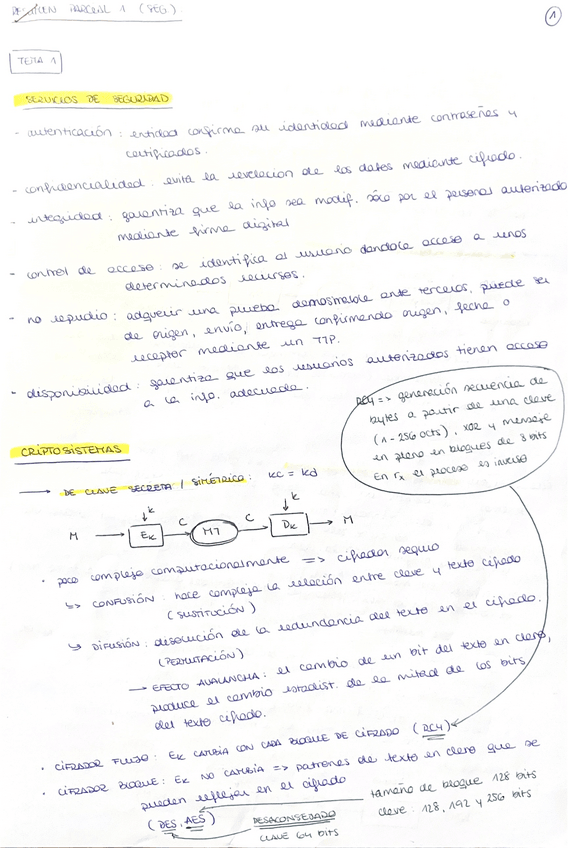 RESUMEN PARCIAL 1 (SEG.)
1
TEMA 1
SERVICIOS DE SEGURIDAD
- autenticación : entidad confirma su identidad mediante contraseñas y
certificados.
- confidencialidad : evita la revelacion de los datos mediante cifrado.
- integridad : garantiza que la info sea modif. sólo por el personal autorizado
mediante firma digital
- control de acceso : se identifica al usuario dandole acceso a unos
determinados recursos.
- no repudio : adquerir una prueba demostrable ante terceros, puede ser
de origen, envío, entrega confirmando origen, fecha o
receptor mediante un TTP.
- disponibilidad : garantiza que los usuarios autorizados tienen acceso
a la info. adecuada.
RC4 => generación secuencia de
bytes a partir de una clave
(1 - 256 octs), XOR y mensaje
en plano en bloques de 8 bits
En rx el proceso es inverso
CRIPTOSISTEMAS
→ DE CLAVE SECRETA / SIMÉTRICO : kc = kd
k k
M → Ek C MT C Dk → M
· poco complejo computacionalmente => cifrador seguro
↳ CONFUSIÓN : hace compleja la relación entre clave y texto cifrado
(SUSTITUCIÓN)
↳ DIFUSIÓN : disolución de la redundancia del texto en el cifrado.
(PERMUTACIÓN)
→ EFECTO AVALANCHA : el cambio de un bit del texto en claro,
produce el cambio estadist. de la mitad de los bits
del texto cifrado.
· CIFRADOR FLUJO : Ek CAMBIA CON CADA BLOQUE DE CIFRADO (RC4)
· CIFRADOR BLOQUE : Ek NO CAMBIA => patrones de texto en claro que se
pueden reflejar en el cifrado
(DES, AES)
tamaño de bloque 128 bits
clave : 128, 192 y 256 bits
DESACONSEJADO
CLAVE 64 bits